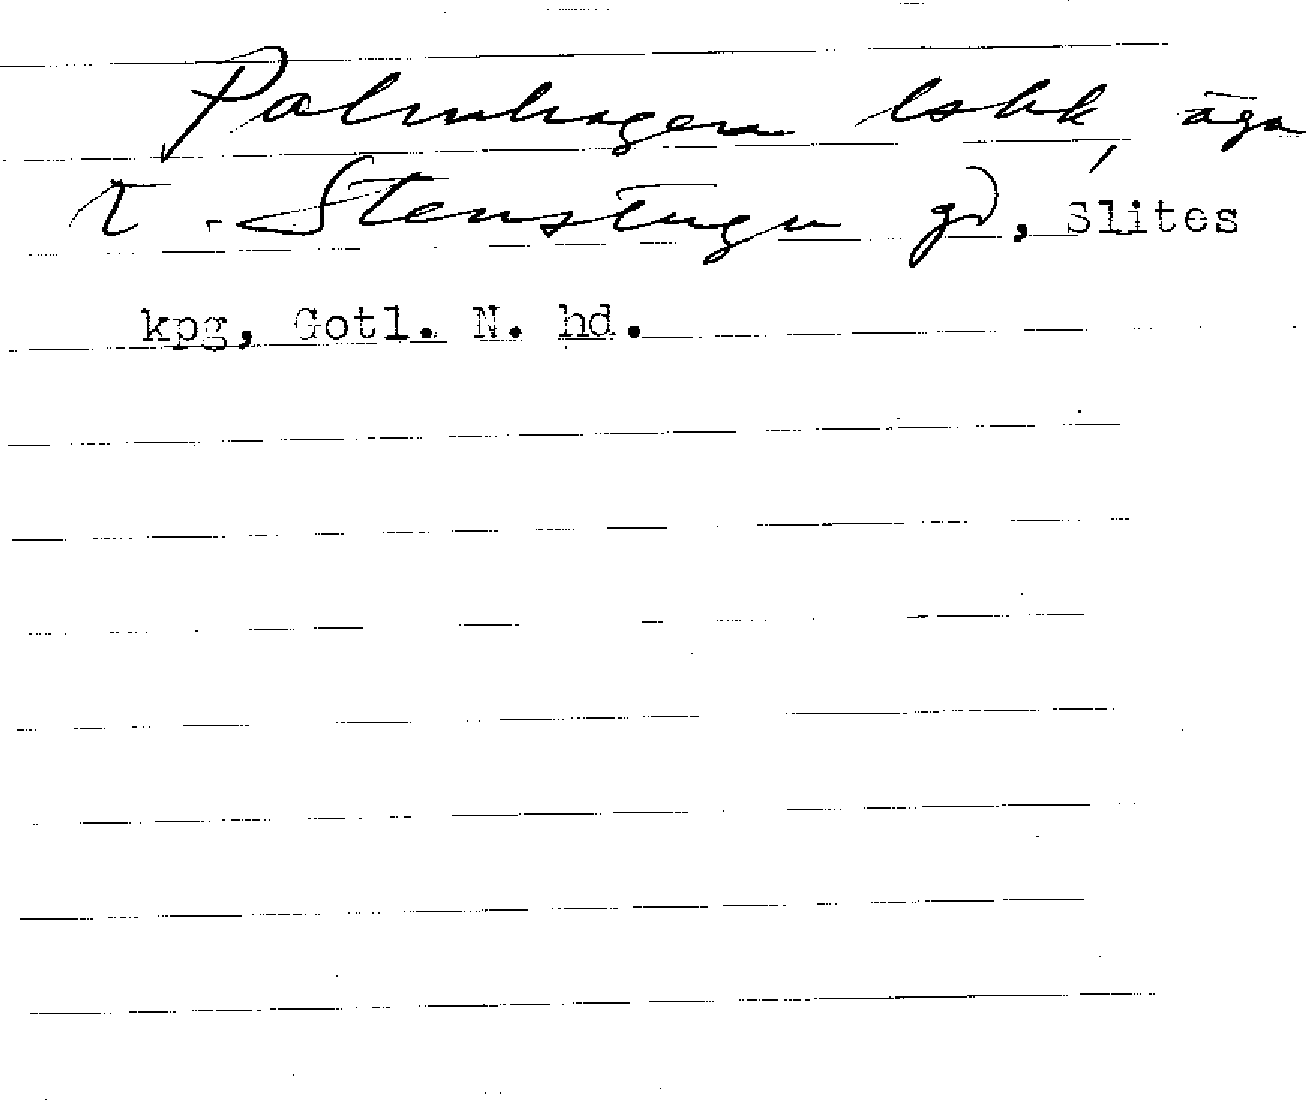 Palmhagen lsbk, äga
t. Stenstugu gd, Slites
kpg, Gotl. N. hd.